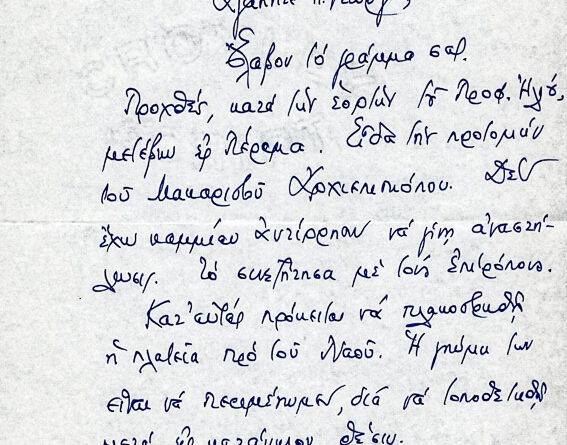 Ἀγαπητέ π. Γεώργ
Ἔλαβον τό γράμμα σας.
Προχθές, κατά τήν ἑορτήν τοῦ Προφ. Ἠλιού,
μετέβην εἰς Πέραμα. Εἶδα τήν προτομήν
τοῦ Μακαριστοῦ Ἀρχιεπισκόπου. Δέν
ἔχω καμμίαν ἀντίρρησιν νά γίνῃ ἀναστή-
λωσις. Τό συνεζήτησα μέ τούς ἐπιτρόπους.
Κατ' αὐτάς πρόκειται νά πλακοστρωθῇ
ἡ πλατεῖα πρό τοῦ Ναοῦ. Ἡ γνώμη των
εἶναι νά περιμένωμεν, διά νά τοποθετηθῇ
μετά εἰς κατάλληλον θέσιν.